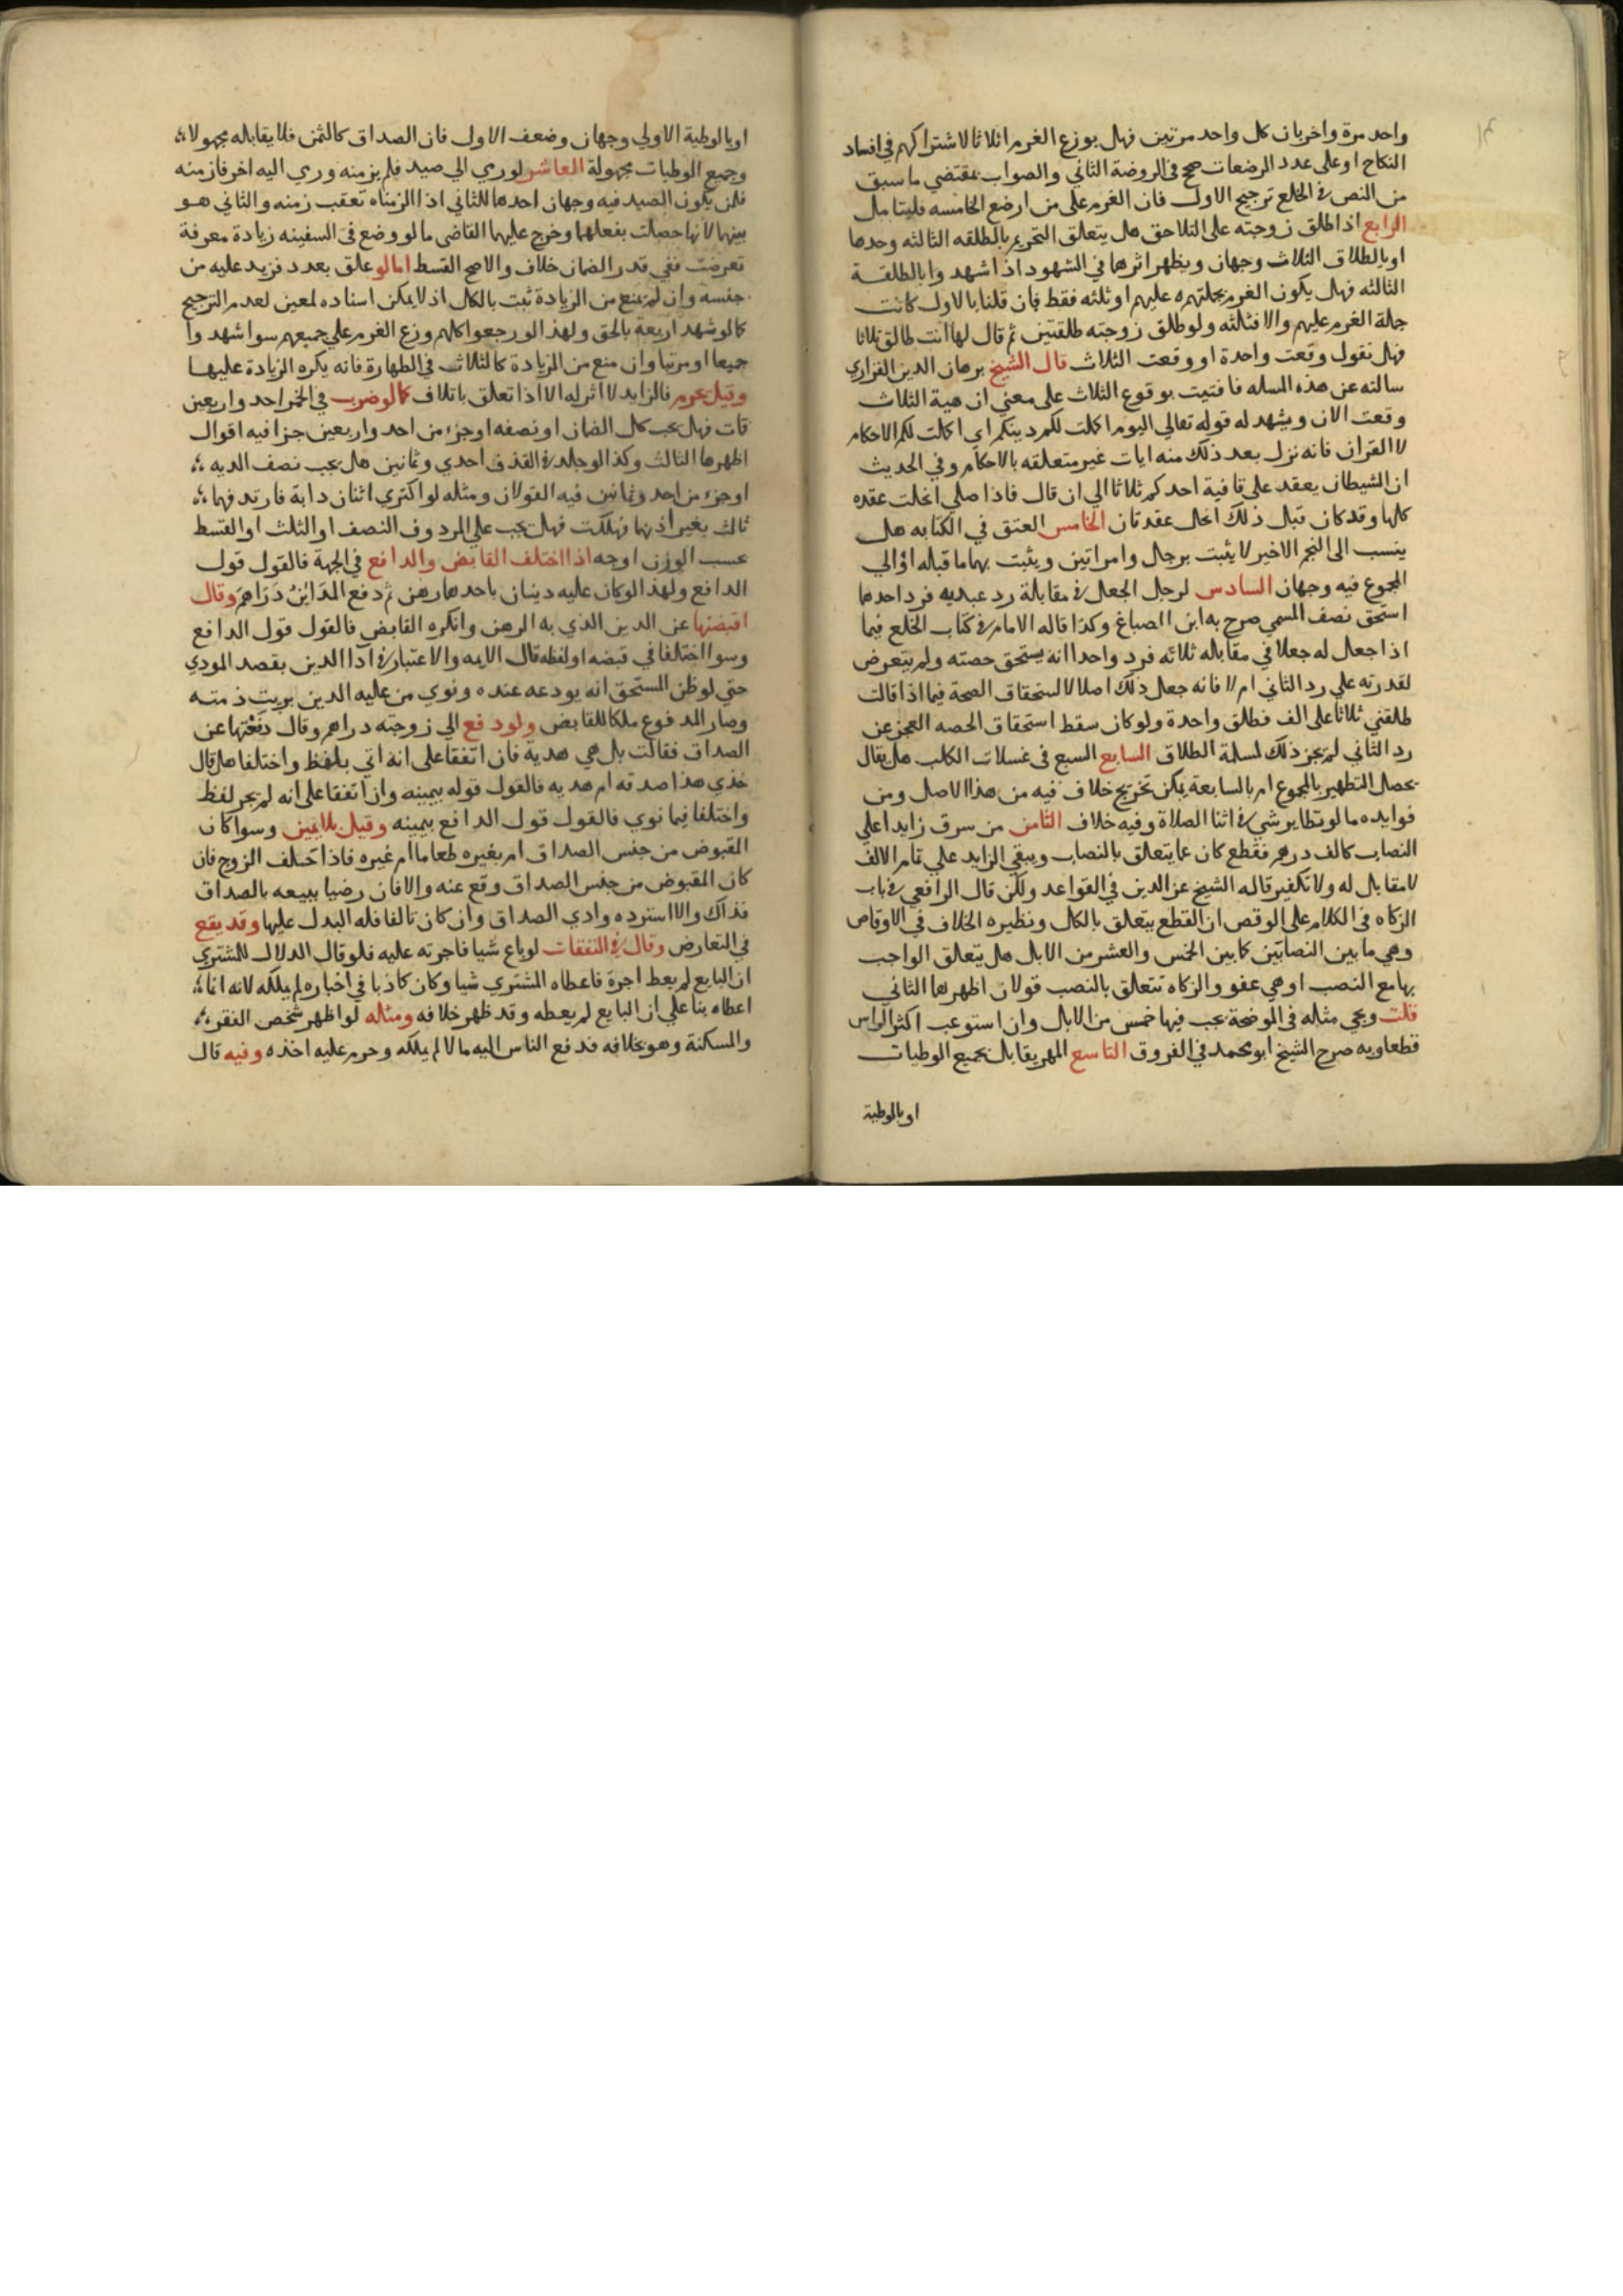 واحد مرة واخريان كل واحد مرتين فهل يوزع الغرم اثلاثا لاشتراكهم في افساد
النكاح او على عدد الرضعات صحح في الروضة الثاني والصواب مقتضي ما سبق
من النص في الخلع ترجيح الاول فان الغرم على من ارضع الخامسه فليتامل
الرابع اذا طلق زوجته على التلاحق هل يتعلق التحريم بالطلقه الثالثه وحدها
او بالطلاق الثلاث وجهان ويظهر اثرها في الشهود اذا شهدوا بالطلقة
الثالثه فهل يكون الغرم بجملته عليهم او ثلثه فقط فان قلنا بالاول كانت
جملة الغرم عليهم والا فثلثه ولو طلق زوجته طلقتين ثم قال لها انت طالق ثلاثا
فهل نقول وقعت واحدة او وقعت الثلاث قال الشيخ برهان الدين الفزاري
سالته عن هذه المسله فافتيت بوقوع الثلاث على معني ان هية الثلاث
وقعت الان ويشهد له قوله تعالي اليوم اكملت لكم دينكم اي اكملت لكم الاحكام
لا القران فانه نزل بعد ذلك منه ايات غير متعلقه بالاحكام وفي الحديث
ان الشيطان يعقد على قافية احدكم ثلاثا الي ان قال فاذا صلي انحلت عقده
كلها وقد كان قبل ذلك انحل عقدتان الخامس العتق في الكتابه هل
ينسب الى النجم الاخير لا يثبت برجل وامراتين ويثبت بهما ما قبله او الي
المجموع فيه وجهان السادس لرجل الجعل في مقابلة رد عبديه فرد احدهما
استحق نصف المسمي صرح به ابن الصباغ وكذا قاله الامام في كتاب الخلع فيما
اذا جعل له جعلا في مقابله ثلاثه فرد واحدا انه يستحق حصته ولم يتعرض
لقدرته علي رد الثاني ام لا فانه جعل ذلك اصلا لاستحقاق الصحة فيما اذا قالت
طلقني ثلاثا على الف فطلق واحدة ولو كان سقط استحقاق الحصه العجز عن
رد الثاني لم يجز ذلك لمسلة الطلاق السابع السبع في غسلات الكلب هل يقال
يحصل التطهير بالمجموع ام بالسابعة يمكن تخريج خلاف فيه من هذا الاصل ومن
فوايده ما لو تطاير شي في اثنا الصلاة وفيه خلاف الثامن من سرق زايدا علي
النصاب كالف درهم فقطع كان مما يتعلق بالنصاب ويبقي الزايد علي تمام الالف
لا مقابل له ولا تكفير قاله الشيخ عز الدين في القواعد ولكن قال الرافعي في باب
الزكاه في الكلام على الوقص ان القطع يتعلق بالكل ونظيره الخلاف في الاوقاص
وهي ما بين النصابين كما بين الخمس والعشر من الابل هل يتعلق الواجب
بها مع النصب او هي عفو والزكاه تتعلق بالنصب قولان اظهرهما الثاني
قلت ويجي مثله في الموضحة يجب فيها خمس من الابل وان استوعب اكثر الراس
قطعا وبه صرح الشيخ ابو محمد في الفروق التاسع المهر يقابل بجميع الوطيات
او بالوطية
او بالوطية الاولي وجهان وضعف الاول فان الصداق كالثمن فلا يقابله مجهولا
وجميع الوطيات مجهولة العاشر لو رمي الي صيد فلم يزمنه ورمي اليه اخر فازمنه
فلمن يكون الصيد فيه وجهان احدهما للثاني اذ الازمناه تعقب زمنه والثاني هو
بينهما لانها حصلت بفعلهما وخرج عليهما القاضي ما لو وضع في السفينه زيادة معرفة
تعرضت ففي قدر الضمان خلاف والاصح القسط اما لو علق بعدد فزيد عليه من
جنسه وان لم يمنع من الزيادة ثبت بالكل اذ لا يمكن اسناده لمعين لعدم الترجيح
كما لو شهد اربعة بالحق ولهذا لو رجعوا كلهم وزع الغرم علي جميعهم سوا شهدوا
جميعا او مرتبا وان منع من الزيادة كالثلاث في الطهارة فانه يكره الزيادة عليها
وقيل يحرم فالزايد لا اثر له الا اذا تعلق باتلاف كما لو ضرب في الخمر احد واربعين
فمات فهل يجب كل الضمان او نصفه او جزء من احد واربعين جزا فيه اقوال
اظهرها الثالث وكذا لو جلد في القذف احدي وثمانين هل يجب نصف الديه
او جزء من احد وثمانين فيه القولان ومثله لو اكتري اثنان دابة فارتدفهما
ثالث بغير اذنهما فهلكت فهل يجب علي المردوف النصف او الثلث او القسط
بحسب الوزن اوجه اذا اختلف القابض والدافع في الجهة فالقول قول
الدافع ولهذا لو كان عليه دينان باحدهما رهن ثم دفع المداين دراهم وقال
اقبضتها عن الدين الذي به الرهن وانكره القابض فالقول قول الدافع
وسوا اختلفا في قبضه او لفظه قال الايمه والاعتبار في اداا الدين بقصد المودي
حتي لو ظن المستحق انه يودعه عنده ونوي من عليه الدين بريت ذمته
وصار المدفوع ملكا للقابض ولو دفع الي زوجته دراهم وقال دفعتها عن
الصداق فقالت بل هي هدية فان اتفقا على انه اتي بلفظ واختلفا هل قال
خذي هذا صدقه ام هديه فالقول قوله بيمينه وان اتفقا على انه لم يجر لفظ
واختلفا فيما نوي فالقول قول الدافع بيمينه وقيل بلا يمين وسوا كان
المقبوض من جنس الصداق ام بغيره طعاما ام غيره فاذا حلف الزوج فان
كان المقبوض من جنس الصداق وقع عنه والا فان رضيا ببيعه بالصداق
فذاك والا استرده وادي الصداق وان كان تالفا فله البدل عليها وقد يقع
في التعارض وقال في النفقات لو باع شيا فاجرته عليه فلو قال الدلال للمشتري
ان البايع لم يعط اجرة فاعطاه المشتري شيا وكان كاذبا في اخباره لم يملكه لانه انما
اعطاه بنا علي ان البايع لم يعطه وقد ظهر خلافه ومثاله لو اظهر شخص الفقر
والمسكنة وهو بخلافه فدفع الناس اليه مالا لم يملكه وحرم عليه اخذه وفيه قال